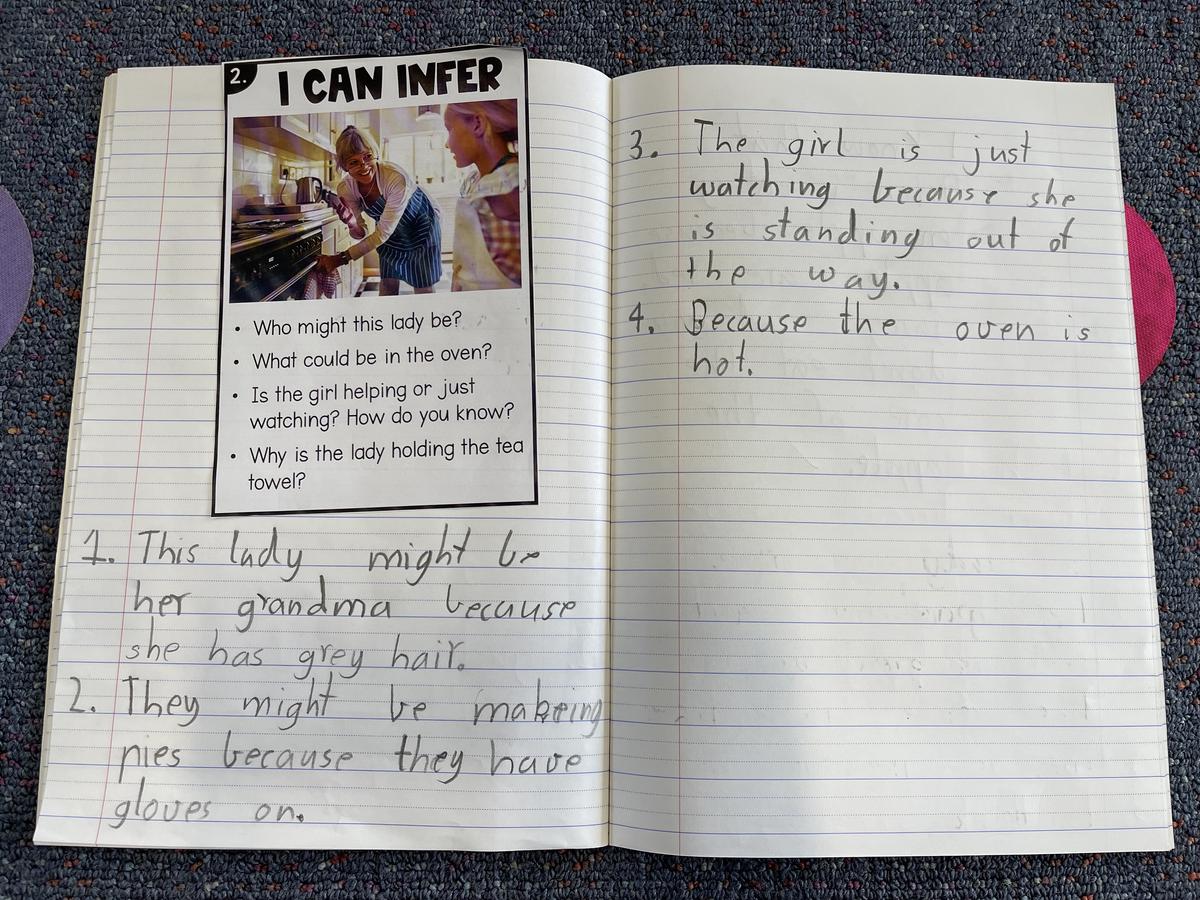 2.
I CAN INFER
• Who might this lady be?
• What could be in the oven?
• Is the girl helping or just
watching? How do you know?
• Why is the lady holding the tea
towel?
1. This lady might be
her grandma because
she has grey hair.
2. They might be makeing
pies because they have
gloves on.
3. The girl is just
watching because she
is standing out of
the way.
4. Because the oven is
hot.